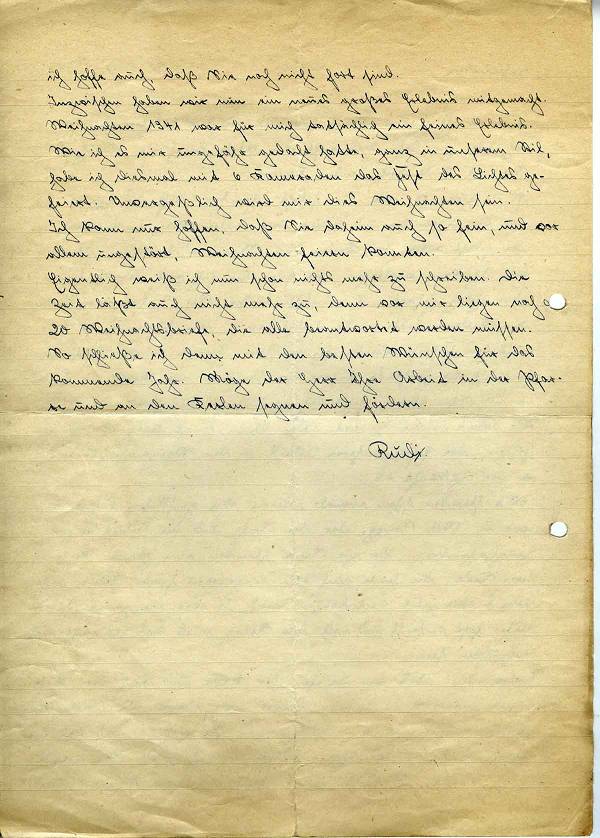 ich hoffe auch, daß Sie noch nicht fort sind.
Inzwischen haben wir nun ein neues großes Erlebnis mitgemacht.
Weihnachten 1941 war für mich tatsächlich ein feines Erlebnis.
Wie ich es mir ungefähr gedacht hatte, ganz in unserem Stil,
habe ich diesmal mit 6 Kameraden das Fest des Lichtes ge-
feiert. Unvergeßlich wird mir dies Weihnachten sein.
Ich kann nur hoffen, daß Sie daheim auch so fein, und vor
allem ungestört, Weihnachten feiern konnten.
Eigentlich weiß ich nun schon nichts mehr zu schreiben. Die
Zeit läßt auch nicht mehr zu, denn vor mir liegen noch
20 Weihnachtsbriefe, die alle beantwortet werden müssen.
So schließe ich denn mit den besten Wünschen für das
kommende Jahr. Möge der Herr Ihre Arbeit in der Pfar-
re und an den Seelen segnen und fördern.
Rudi.